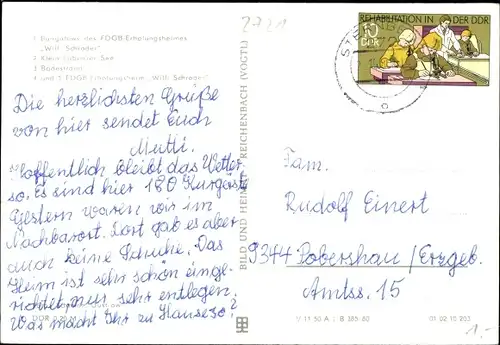 2721
1 Bungalows des FDGB-Erholungsheimes
"Willi Schröder"
2 Klein Labenzer See
3 Badestrand
4 und 5 FDGB-Erholungsheim "Willi Schröder"
Die herzlichsten Grüße
von hier sendet Euch
Mutti.
Hoffentlich bleibt das Wetter
so. Es sind hier 180 Kurgäste
Gestern waren wir im
Nachbarort. Dort gab es aber
auch keine Schuhe. Das
Heim ist sehr schön einge-
richtet, nur sehr entlegen.
Was macht Ihr zu Hause so?
BILD UND HEIMAT REICHENBACH (VOGTL)
REHABILITATION IN DER DDR
10
DDR
Fam.
Rudolf Einert
9344 Pobershau/Erzgeb.
Amtss. 15
V 11 50 A 1/B 385/80
01 02 10 203
1.-